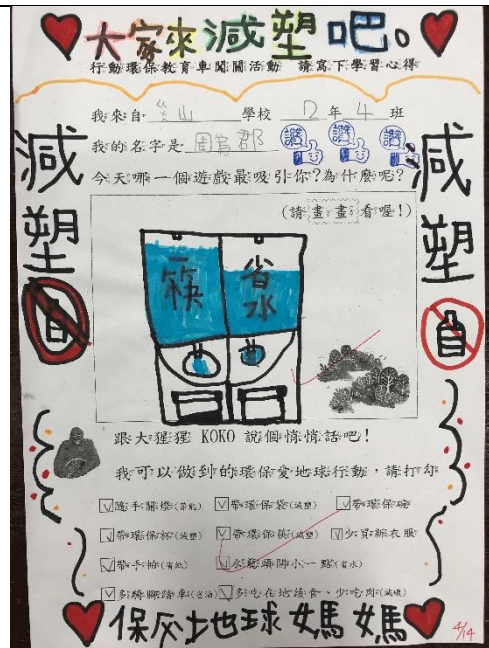 大家來減塑吧。
行動環保教育車闖關活動 請寫下學習心得
我來自 山 學校 2 年 4 班
我的名字是 周 郡 讚 讚 讚
今天哪一個遊戲最吸引你?為什麼呢?
(請畫畫看喔!)
減塑
減塑
筷
省水
跟大猩猩 KOKO 說個悄悄話吧!
我可以做到的環保愛地球行動,請打勾
隨手關燈(節能) 帶環保袋(減塑) 帶環保碗
帶環保杯(減塑) 帶環保筷(減塑) 少買新衣服
帶手帕(省紙) 水龍頭開小一點(省水)
多騎腳踏車(省油) 多吃在地蔬食、少吃肉(減碳)
地球媽媽
4/14